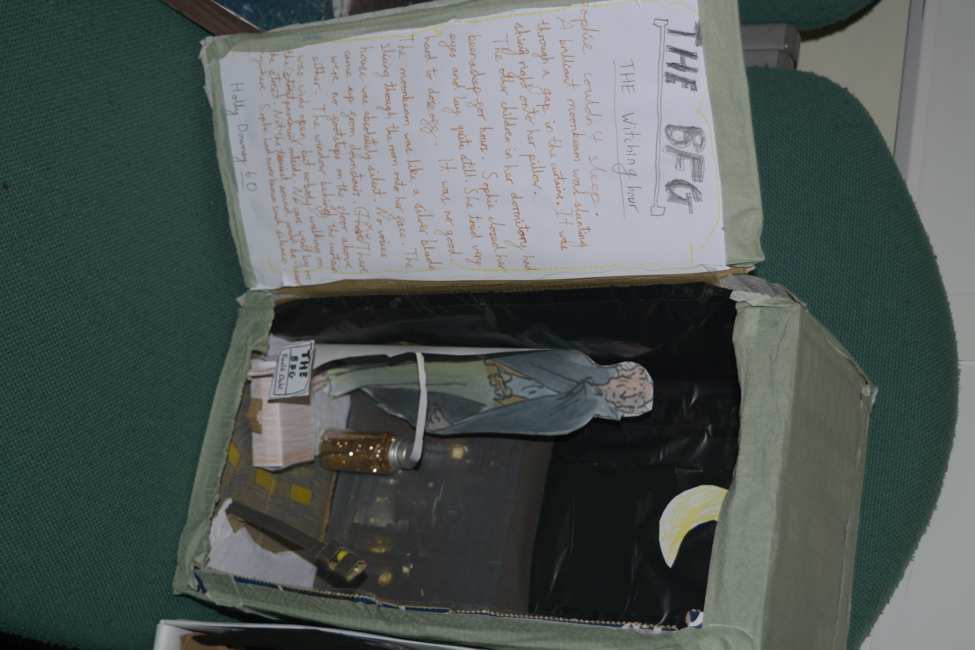 THE BFG
THE Witching hour
Sophie couldn't sleep.
A brilliant moonbeam was slanting
through a gap in the curtains. It was
shining right onto her pillow.
The other children in her dormitory had
been asleep for hour. Sophie closed her
eyes and lay quite still. She tried very
hard to doze off. It was no good.
The moonbeam was like a silver blade
slicing through the room onto her face. The
house was absolutely silent. No voices
came up from downstairs. There
were no footsteps on the floor above
either. The window behind the curtain
was wide open, but nobody was walking on
the pavement outside. Not a
the street. Not the
anywhere. Sophie had never known such silence.
Holly Downey 6.0
THE
BFG
Roald Dahl